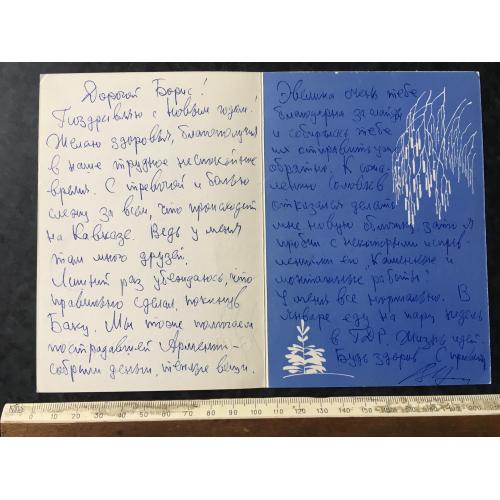 Дорогой Борис!
Поздравляю с Новым годом!
Желаю здоровья, благополучия
в наше трудное неспокойное
время. С тревогой и болью
слежу за всем, что происходит
на Кавказе. Ведь у меня
там много друзей.
Лишний раз убеждаюсь, что
правильно сделал, покинув
Баку. Мы тоже помогаем
пострадавшей Армении –
собрали деньги, теплые вещи.
Эвелина очень тебе
благодарна за слайды
и собираюсь тебе
их отправить
обратно. К сожа-
лению Соловьев
отказался делать
мне новую обложку, зато я
пробил с некоторыми
его "Каменные и
монтажные работы"
У меня все нормально. В
Январе еду на пару недель
в ГДР. Жизнь идет.
Будь здоров. С приветом
0 10 20 30 40 50 60 70 80 90 100 110 120 130 140 150 160 170 180 190 200